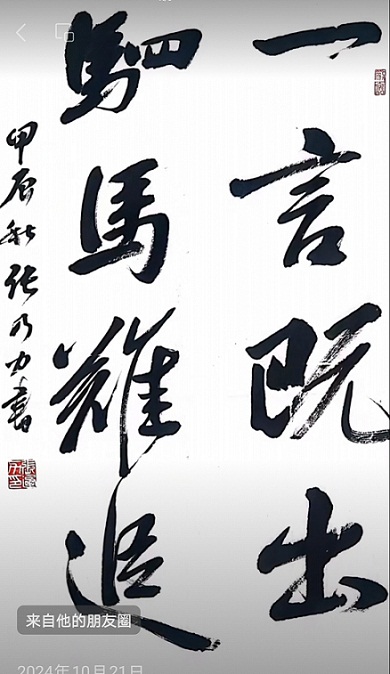 一言既出
駟馬難追
甲辰秋张乃力書
来自他的朋友圈
2024年10月21日